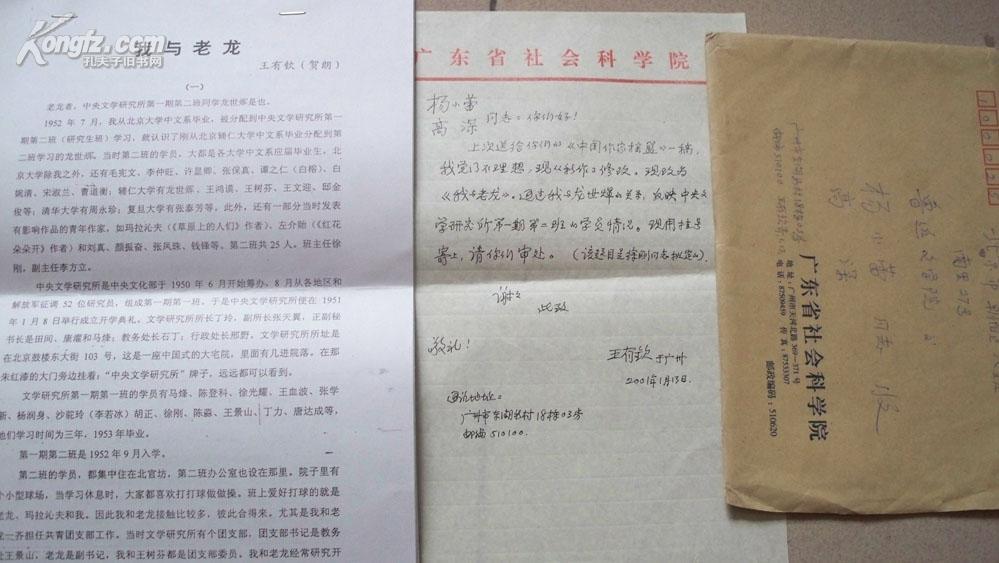 Kongfz.com
孔夫子旧书网
我与老龙
王有钦（贺朗）
（一）
老龙者，中央文学研究所第一期第二班同学龙世辉是也。
1952 年 7 月，我从北京大学中文系毕业，被分配到中央文学研究所第一
期第二班（研究生班）学习，就认识了刚从北京辅仁大学中文系毕业分配到第
二班学习的龙世辉。当时第二班的学员，大都是各大学中文系应届毕业生，北
京大学除我之外，还有毛宪文、李仲旺、许显卿、张保真、谭之仁（白榕）、白
婉清、宋淑兰、曹道衡；辅仁大学有龙世辉、王鸿谟、王树芬、王文迎、邸金
俊等；清华大学有周永珍；复旦大学有张泰芳等，此外，还有一部分当时发表
有影响作品的青年作家，如玛拉沁夫（《草原上的人们》作者）、左介贻（《红花
朵朵开》作者）和刘真、颜振奋、张凤珠、钱锋等。第二班共 25 人。班主任徐
刚，副主任李方立。
中央文学研究所是中央文化部于 1950 年 6 月开始筹办。8 月从各地区和
解放军征调 52 位研究员，组成第一期第一班。于是中央文学研究所便在 1951
年 1 月 8 日举行成立开学典礼。文学研究所所长丁玲，副所长张天翼，正副秘
书长是田间、康濯和马烽；教务处长石丁；行政处长邢野。文学研究所所址是
在北京鼓楼东大街 103 号，这是一座中国式的大宅院，里面有几进院落。在那
朱红漆的大门旁边挂着：“中央文学研究所”牌子，远远都可以看到。
文学研究所第一期第一班的学员有马烽、陈登科、徐光耀、王血波、张学
新、杨润身、沙驼玲（李若冰）胡正、徐刚、陈淼、王景山、丁力、唐达成等，
他们学习时间为三年，1953 年毕业。
第一期第二班是 1952 年 9 月入学。
第二班的学员，都集中住在北官坊，第二班办公室也设在那里。院子里有
个小型球场，当学习休息时，大家都喜欢打打球做做操。班上爱好打球的就是
老龙、玛拉沁夫和我。因此我和老龙接触比较多，彼此合得来。尤其是我和老
龙一齐担任共青团支部工作。当时文学研究所有个团支部，团支部书记是教务
处王景山，老龙是副书记，我和王树芬都是团支部委员。我和老龙经常研究开
广东省社会科学院
杨小蕾
高深 同志：你们好！
上次送给你们的《中国作家摇篮》一稿，
我觉得不理想，现《新作》修改。现改为
《我与老龙》。通过我与龙世辉的关系，反映中央文
学研究所第一期第二班的学员情况。现用挂号
寄上，请你们审处。（该题目是徐刚同志拟定的）。
谢谢
此致
敬礼！
王有钦 于广州
2001年1月13日.
通讯地址：
广州市东湖新村18栋03房
邮编510100.
鲁迅文学院
南里27号
杨小蕾同志 收
高深
邮编510100
广东省社会科学院
地址：广州市天河北路369—371号
电话：87509459 传真：87533307
邮政编码：510620